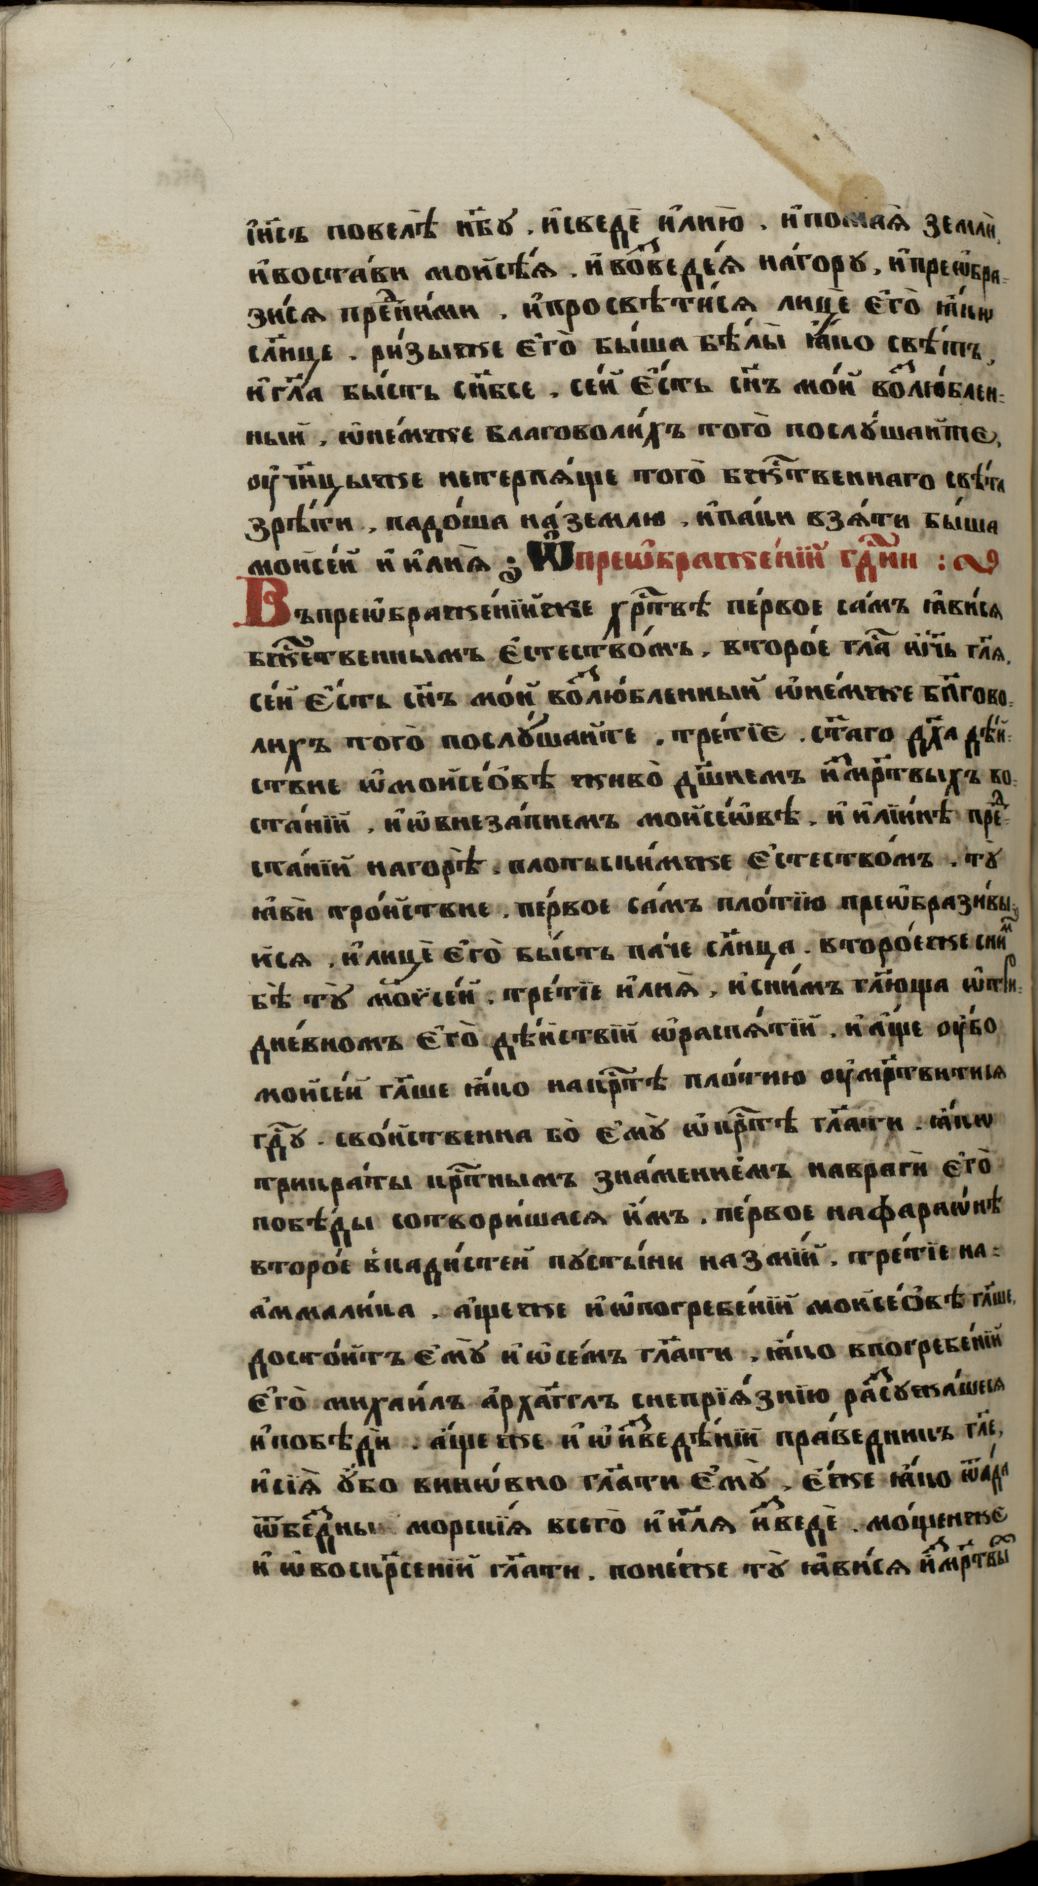 і҆и҃съ повелѣ̀ н҃бꙋ . и҆сведѐ и҆лию̀ . и҆помаѧ̀ землѝ,
и҆востави мойсе́ѧ . и҆возведе́ѧ наго́рꙋ , и҆преѡ҆бра-
зи́сѧ пре́дни́ми , и҆просвѣти́сѧ лицѐ є҆гѡ̀ ꙗ҆́кѡ
сл҃нце . ри́зыже є҆гѡ̀ бы́ша бѣлы̀ ꙗ҆́ко свѣ́тъ ,
и҆гл҃а бы́сть сн҃бсе , се́й є҆́сть сн҃ъ мо́й возлю́блен-
ный , ѡ҆не́мже благоволи́хъ того̀ послꙋ́шайте,
ᲂу҆чн҃цыже нетерпѧ́ще того̀ бж҃твеннаго свѣ́та
зрѣ́ти , падо́ша на́землю , и҆па́ки взѧ́ти бы́ша
мойсе́й и҆ и҆лиѧ̀ ; Ѡ҆преѡ҆браже́нїй гд҃ни :
Въпреѡ҆браже́нїйже хр҃твѣ пе́рвое са́мъ ꙗ҆ви́сѧ
бж҃е́ственнымъ є҆стество́мъ , второ́е гл҃а ѻ҆́ч҃ь гл҃ѧ ,
се́й є҆́сть сн҃ъ мо́й возлю́бленный ѡ҆не́мже бл҃гово-
лихъ того̀ послꙋ́шайте . тре́тїе . ст҃аго дх҃а дѣ́й-
ствие ѡ҆мойсе́ѻвѣ живо̀ дш҃нємъ и҆змр҃твыхъ во-
ста́нїй , и҆ѡ҆внеза́пнемъ мойсе́ѡвѣ , и҆ и҆лїи́нѣ пред-
ста́нїй нагорѣ̀ . плотьски́мже є҆стество́мъ . тꙋ̀
ꙗ҆вѝ тро́йствие , пе́рвое са́мъ пло́тїю преѡ҆брази́вы-
йсѧ , и҆лицѐ є҆гѡ̀ бы́сть па́че сл҃нца . второ́еже сни́м
бѣ̀ тꙋ̀ мѻѷсе́й . тре́тїе и҆лиѧ̀ , и҆сни́мъ гл҃юща ѡ҆три-
дне́вномъ є҆гѡ̀ дѣ́йствїй ѡ҆распѧ́тїй . и҆а҆́ще ᲂу҆́бо
мойсе́й гл҃ше ꙗ҆́ко накр҃тѣ пло́тию ᲂу҆мр҃твитисѧ
гд҃ꙋ . сво́йственна бо̀ є҆мꙋ̀ ѡ҆кр҃тѣ гл҃ати . ꙗ҆́кѡ
трикра́ты кр҃тнымъ зна́мениемъ навраги̂ є҆гѡ̀
побѣ́ды сотвори́шасѧ и҆́мъ . пе́рвое нафараѡ́нѣ
второ́е в̾кади́стей пꙋсты́ни назмі́й . тре́тїе на-
а҆ммали́ка . а҆́щеже и҆ѡ҆погребе́нїй мойсе́ѻвѣ гл҃ше,
досто́йтъ є҆мꙋ̀ и҆ѡ҆се́мъ гл҃ати , ꙗ҆́ко впогребе́нїй
є҆гѡ̀ михаи́лъ а҆рха́гглъ снепрїѧ́знїю разсꙋжда́шесѧ
и҆побѣдѝ . а҆́щеже и҆ѡ҆и҆зведѣ́нїй пра́ведникъ гл҃е,
и҆сїѧ̀ ᲂу҆́бо винѡ́вно гл҃ати є҆мꙋ̀ , є҆́же ꙗ҆́ко ѿа́да
ѿбе́здны морскі́ѧ всего̀ и҆и҃лѧ и҆зведѐ . мо́щенже
и҆ ѡ҆воскр҃се́нїй гл҃ати . поне́же тꙋ̀ ꙗ҆ви́сѧ и҆змр҃твы